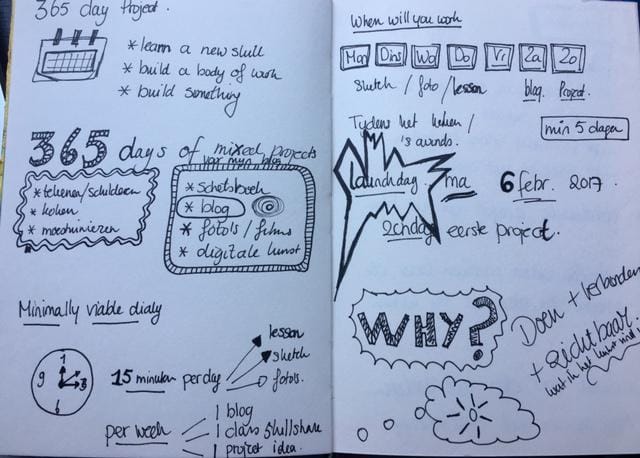 365 day Project.
* learn a new skill
* build a body of work
* build something
365 days of mixed projects
voor mijn blog
* tekenen/schilderen
* koken
* schetsboek
* blog
* foto's / films
* digitale kunst
Minimally viable diary
9 1 3 6
15 minuten per day
lesson
sketch
foto's.
per week
1 blog
1 class Skillshare
1 project idea.
When will you work
Ma Dins Wo Do Vr Za Zo
sketch / foto / lesson blog. Project.
Tydens het koken /
's avonds.
min 5 dagen
launchdag ma 6 febr. 2017
zondag eerste project.
WHY?
Doen +
+ zichtbaar
wat ik leuk vind.